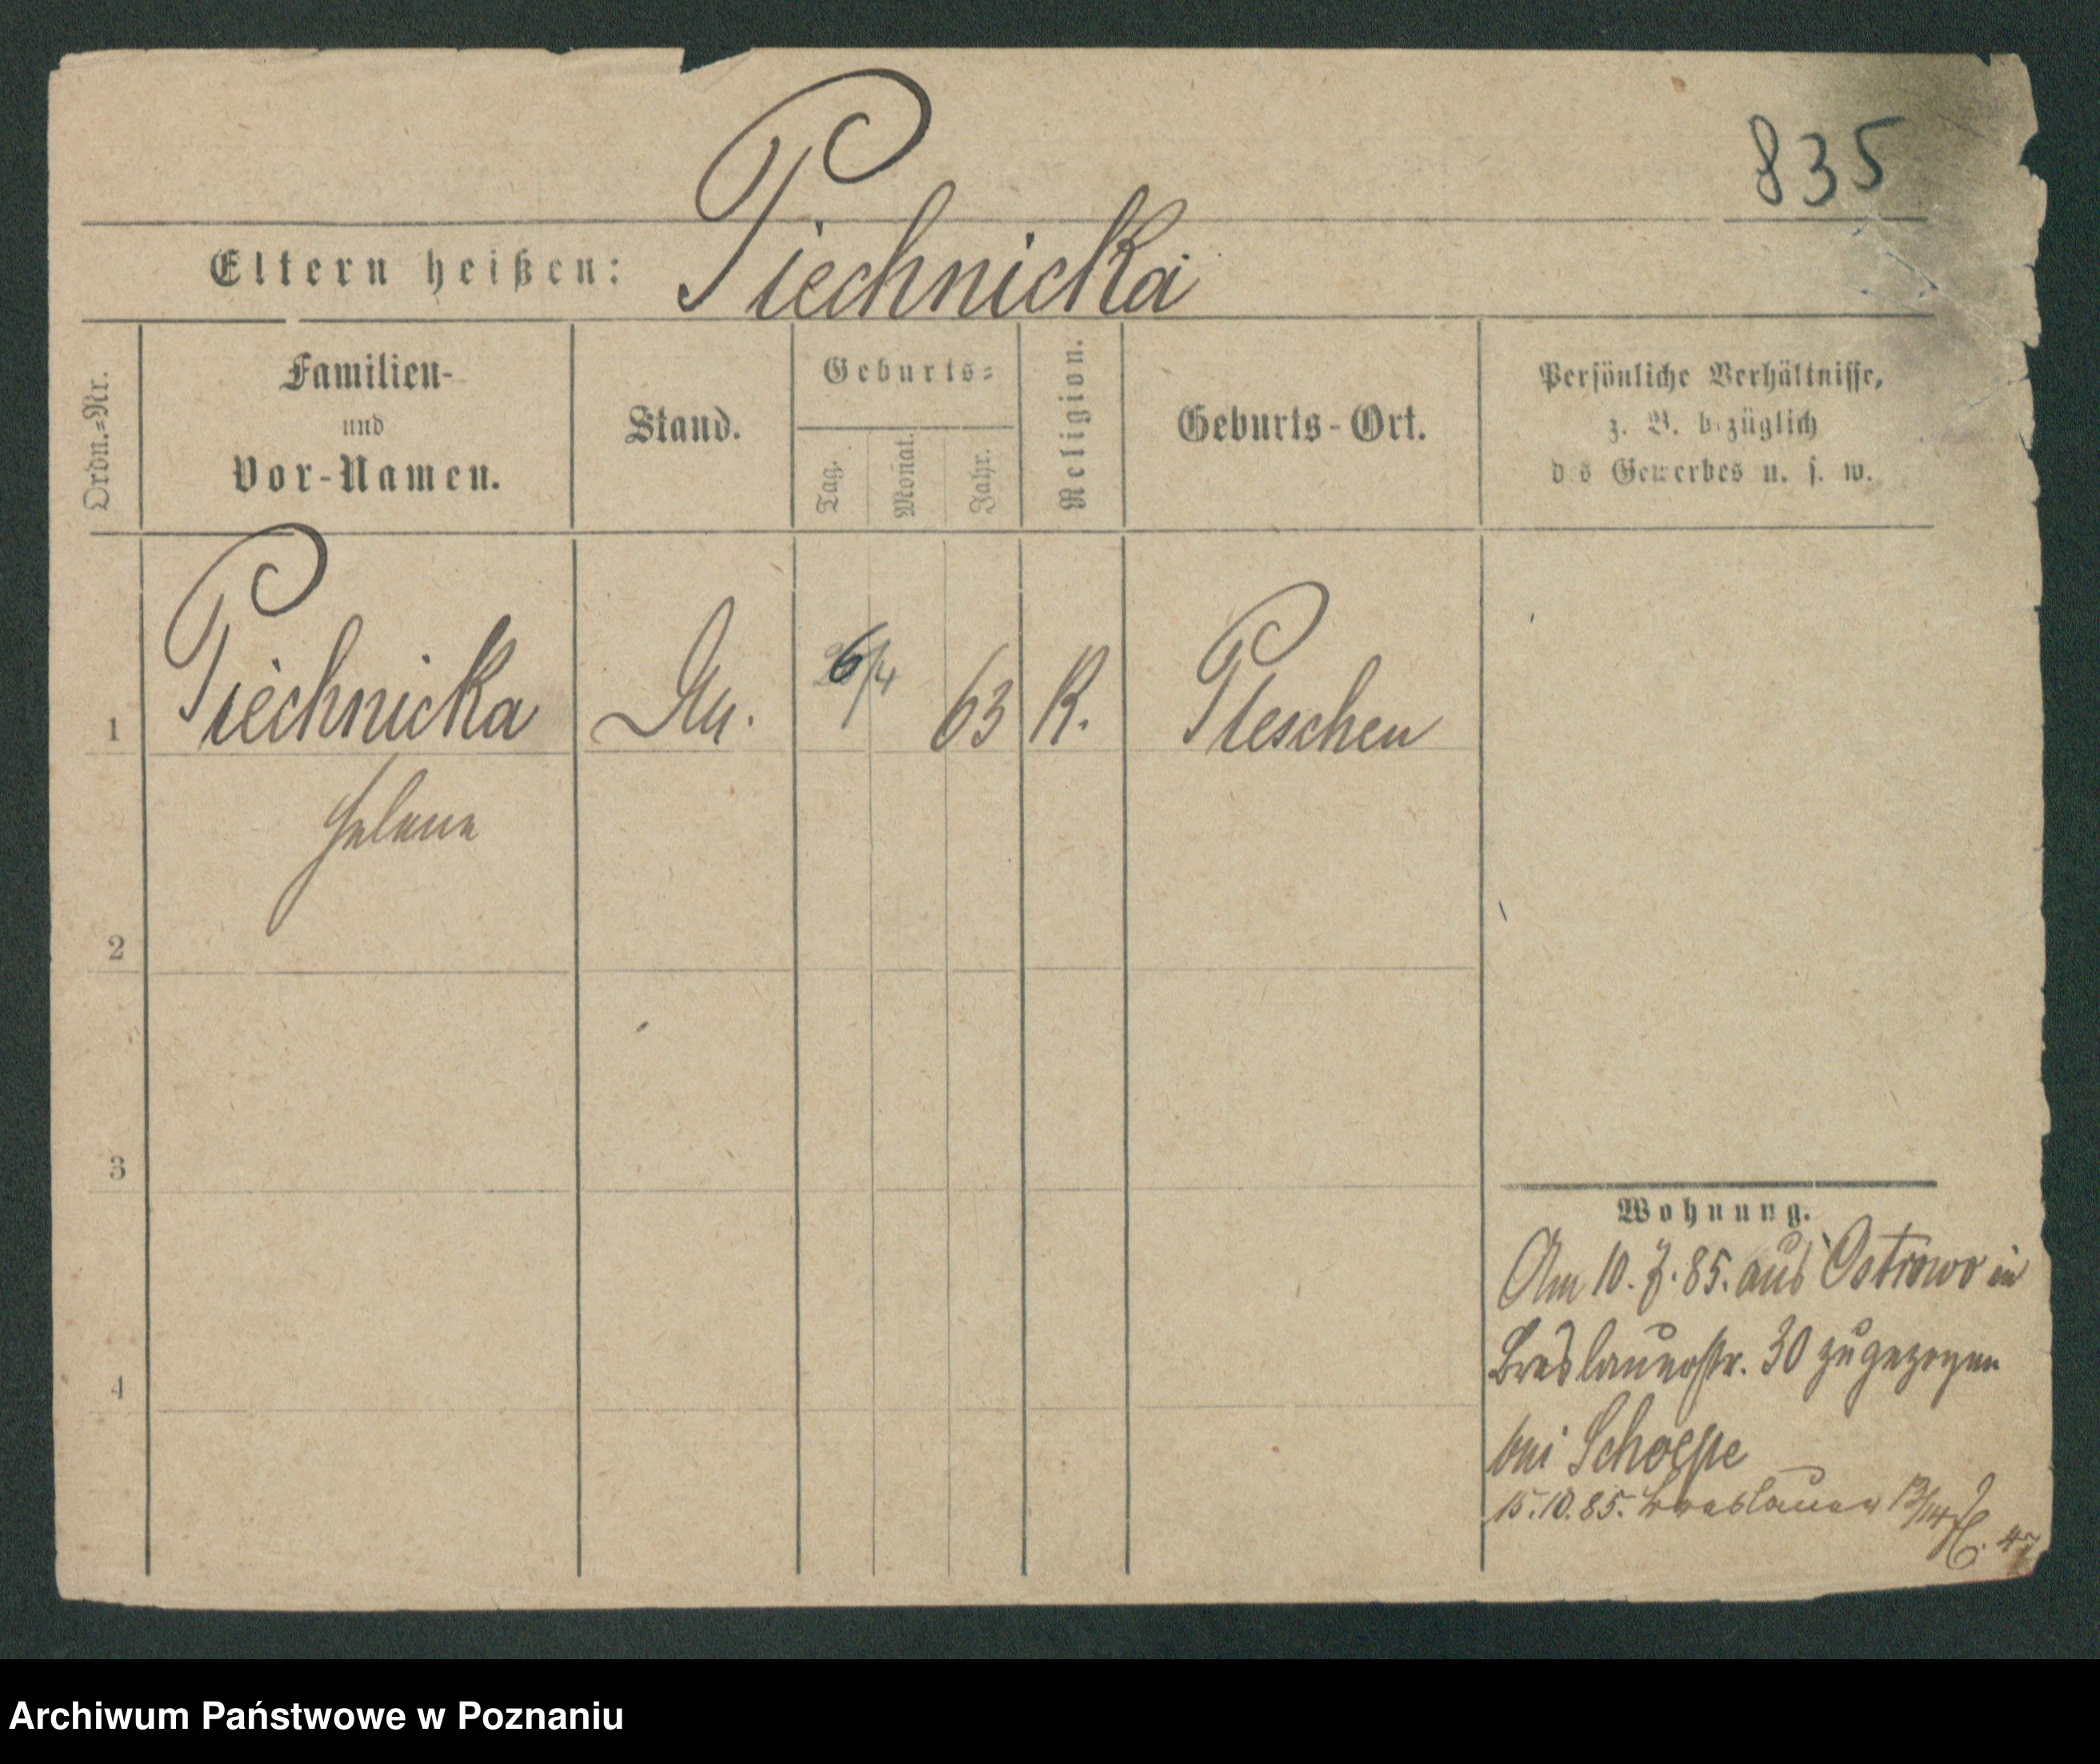 835
Piechnicka
Eltern heißen:
Ordn.=Nr.
Familien-
und
Vor-Namen.
Stand.
Geburts=
Tag.
Monat.
Jahr.
Religion.
Geburts-Ort.
Persönliche Verhältnisse,
z. B. bezüglich
des Gewerbes u. s. w.
1 Piechnicka 6/4 63 K. Pleschen
Helene
2
3
4
Wohnung.
Am 10. 7. 85. aus Ostrowo in
Breslauerstr. 30 zugezogen
bei Schoepe
15.10.85. Breslauer 13/14
Archiwum Państwowe w Poznaniu